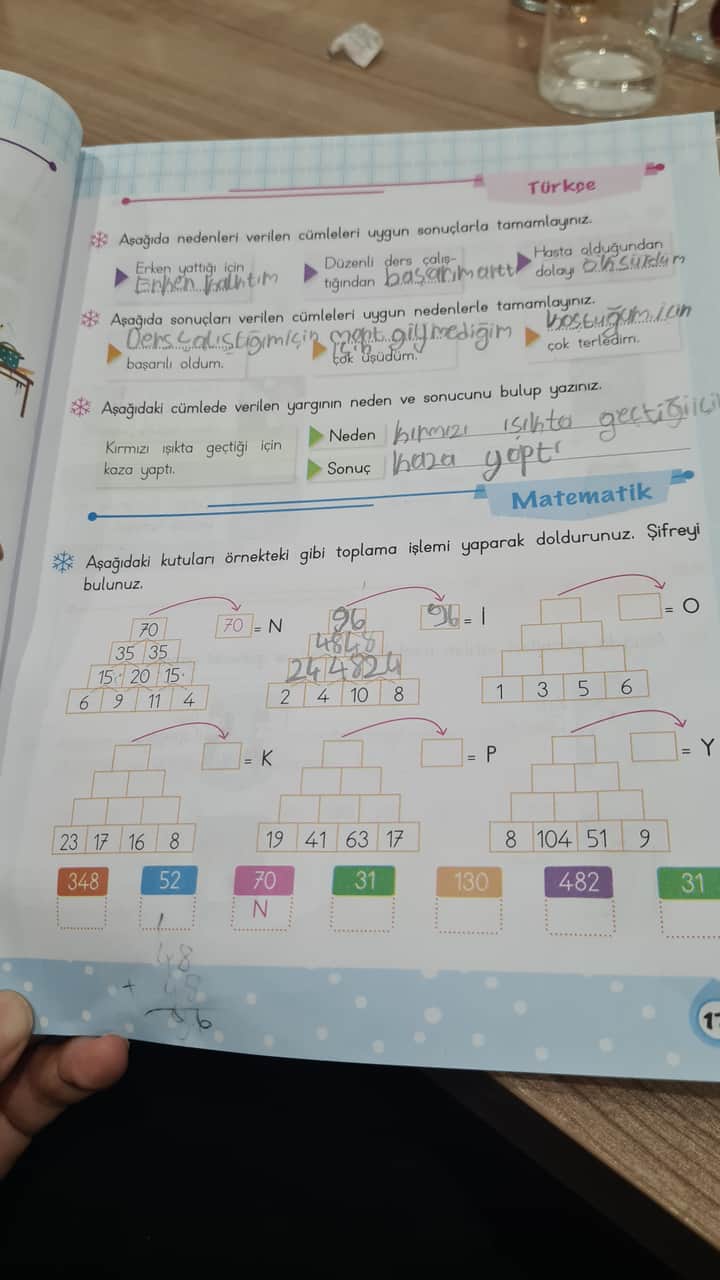 Türkçe
Aşağıda nedenleri verilen cümleleri uygun sonuçlarla tamamlayınız.
Erken yattığı için
Erken kalktım
Düzenli ders çalış-
tığından başarım arttı
Hasta olduğundan
dolayı öksürdüm
Aşağıda sonuçları verilen cümleleri uygun nedenlerle tamamlayınız.
Ders çalıştığım için
başarılı oldum.
mont giymediğim
için
çok üşüdüm.
koştuğum için
çok terledim.
Aşağıdaki cümlede verilen yargının neden ve sonucunu bulup yazınız.
Kırmızı ışıkta geçtiği için
kaza yaptı.
Neden kırmızı ışıkta geçtiği için
Sonuç kaza yaptı
Matematik
Aşağıdaki kutuları örnekteki gibi toplama işlemi yaparak doldurunuz. Şifreyi
bulunuz.
70
35 35
15 20 15
6 9 11 4
70 = N
96
48 48
24 48 24
2 4 10 8
96 = I
1 3 5 6
= O
23 17 16 8
= K
19 41 63 17
= P
8 104 51 9
= Y
348 52 70 31 130 482 31
N
1
48
+ 48
96